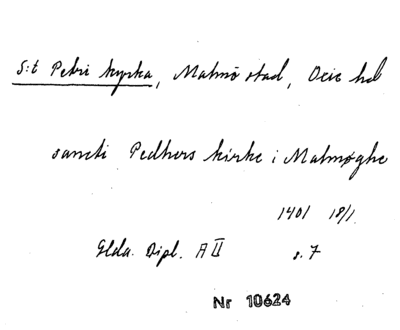 S:t Petri kyrka, Malmö stad, Oxie hd
sancti Pedhers kirke i Malmøghe
1401 18/1
Glda. Dipl. A II s. 7
Nr 10624